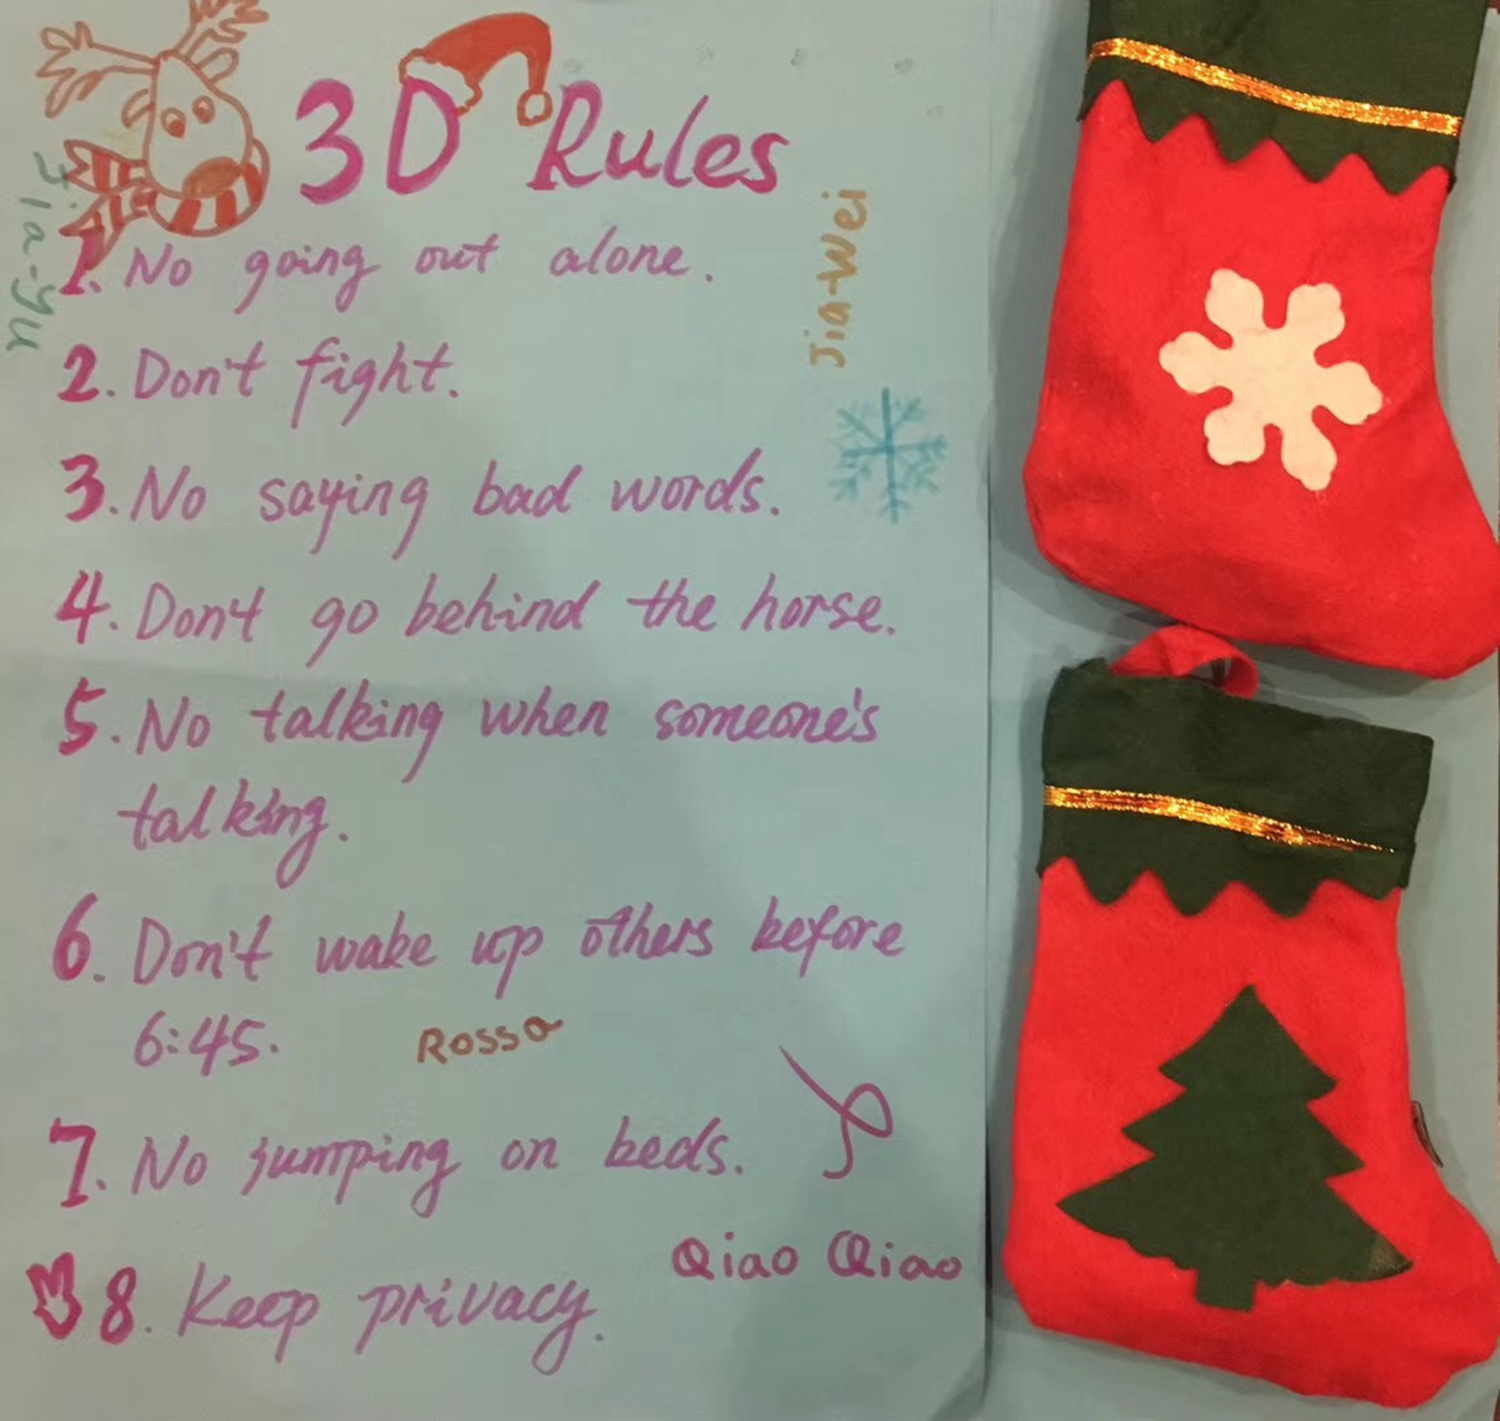 3D Rules
Jia-yu
1. No going out alone.
Jia-Wei
2. Don't fight.
3. No saying bad words.
4. Don't go behind the horse.
5. No talking when someone's
talking.
6. Don't wake up others before
6:45.
Rosso
7. No jumping on beds.
Qiao Qiao
8. Keep privacy.